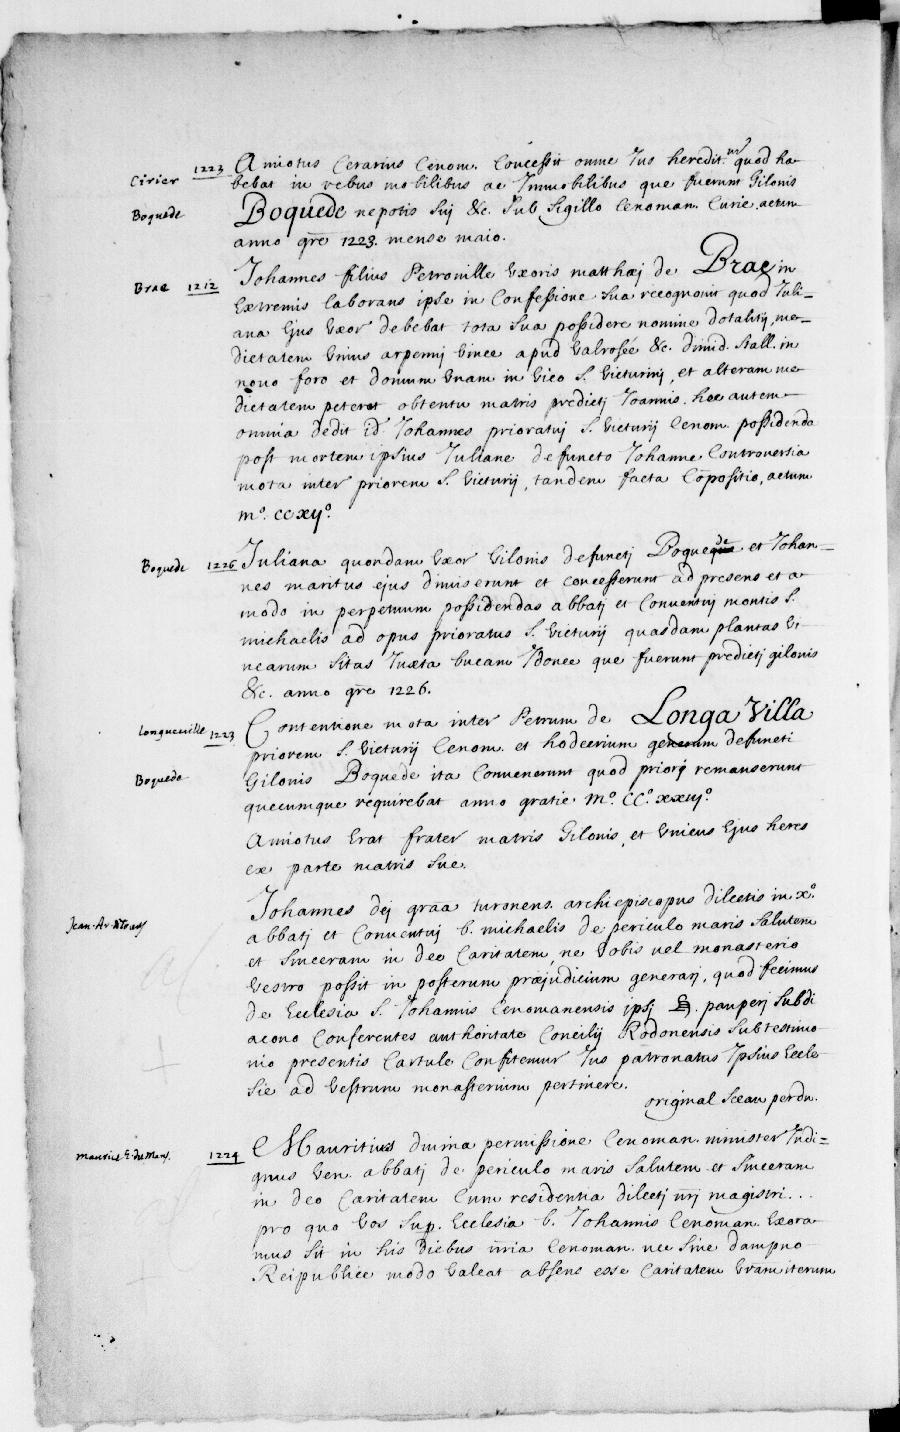 Cirier 1223 Amiotus Cerarius Cenom. Concessit omne Jus heredit. quod ha-
bebat in rebus mobilibus ac Immobilibus que fuerunt Gilonis
Boquede Boquede nepotis Suj &c. Sub Sigillo Cenoman. Curie. actum
anno gre 1223. mense maio.
Brae 1212 Johannes filius Petronille Uxoris matthæj de Brae in
Extremis laborans ipse in Confessione Sua recognovit quod Juli-
ana Ejus Uxor debebat tota Sua possidere nomine dotalitij, me-
dietatem Unius arpennj Vinee apud Valrosée &c. dimid. Stall. in
novo foro et domum Unam in Vico S. Victurinj, et alteram me
dietatem peteret obtentu matris predictj Joannis. hoc autem
omnia dedit id Johannes prioratuj S. Victurij Cenom. possidenda
post mortem ipsius Juliane defuncto Johanne Controversia
mota inter priorem S. Victurij, tandem facta Cōpositio, actum
mº. ccxijº.
Boquede 1226 Juliana quondam Uxor Gilonis defunctj Boquede et Johan-
nes maritus ejus dimiserunt et concesserunt ad presens et a
modo in perpetuum possidendas abbatj et Conventuj montis S.
michaelis ad opus prioratus S. Victurij quasdam plantas Vi
nearum Sitas Juxta lucam Jdonee que fuerunt predictj gilonis
&c. anno gre 1226.
Longueville 1223 Contentione mota inter Petrum de Longa Villa
priorem S. Victurij Cenom. et hodeerium generum defuncti
Boquede Gilonis Boquede ita Convenerunt quod priorj remanserunt
quecumque requirebat anno gratie Mº. CCº. xxiijº.
Amiotus Erat frater matris Gilonis, et Unicus Ejus heres
ex parte matris Sue.
Johannes dej graa turonens. archiepiscopus dilectis in xº.
Jean Ar. abbatj et Conventuj b. michaelis de periculo maris Salutem
et Sinceram in deo Caritatem, ne Vobis vel monasterio
Vestro possit in posterum præjudicium generarj, quod fecimus
de Ecclesia S. Johannis Cenomanensis ipsj G. pauperj Subdi
acono Conferentes authoritate Concilij Rodonensis Sub testimo
nio presentis Cartule Confitemur Jus patronatus Ipsius Eccle-
sie ad Vestrum monasterium pertinere.
original Sceau perdu.
maurice E. du Mans. 1224 Mauritius divina permissione Cenoman. minister Indi-
gnus Ven. abbatj de periculo maris Salutem et Sinceram
in deo Caritatem Cum residentia dilectj nrj magistri...
pro quo Vos Sup. Ecclesia b. Johannis Cenoman. Exora-
mus Sit in his diebus nria Cenoman. nec Sine dampno
Reipublice modo Valeat absens esse Caritatem Vram iterum